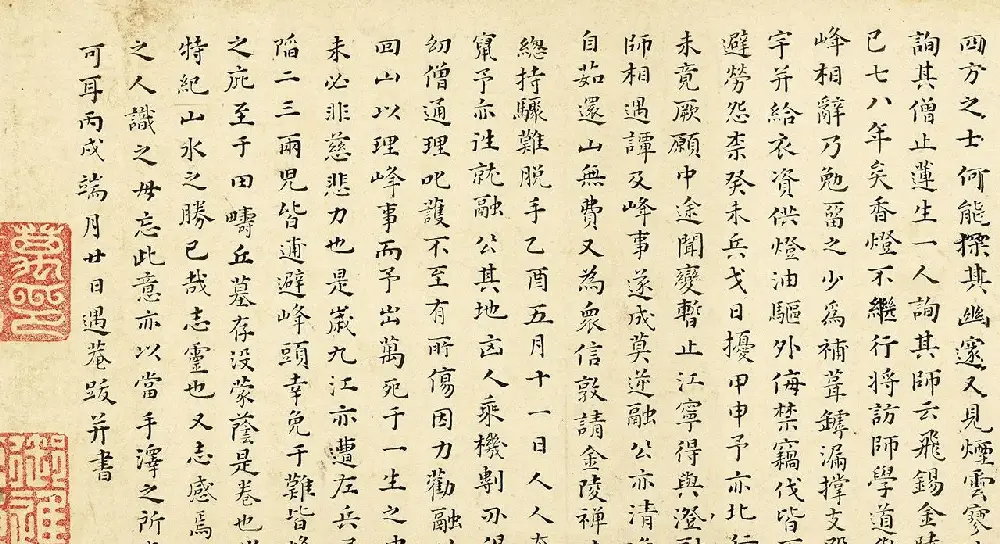 四方之士何能探其幽邃又見煙雲寥
詢其僧止蓮生一人詢其師云飛錫金陵
已七八年矣香燈不繼行將訪師學道
峰相辭乃勉留之少為補葺鏬漏撐支
宇并給衣資供燈油驅外侮禁竊伐皆
避勞怨柰癸未兵戈日擾甲申予亦北行
未竟厥願中途聞變暫止江寧得與澄
師相遇譚及峰事遂成莫逆融公亦清
自茹還山無費又為眾信敦請金陵禪
總持驟難脫手乙酉五月十一日人人
竄予亦往就融公其地亡人乘機剽
幼僧通理叱護不至有所傷因力勸融
回山以理峰事而予出萬死于一生之
未必非慈悲力也是歲九江亦遭左兵
陷二三兩兒皆逋避峰頭幸免于難皆
之庇至于田疇丘墓存没蒙蔭是卷也
特紀山水之勝已哉志靈也又志感焉
之人識之毋忘此意亦以當手澤之所
可耳丙戌端月廿日遇菴跋并書